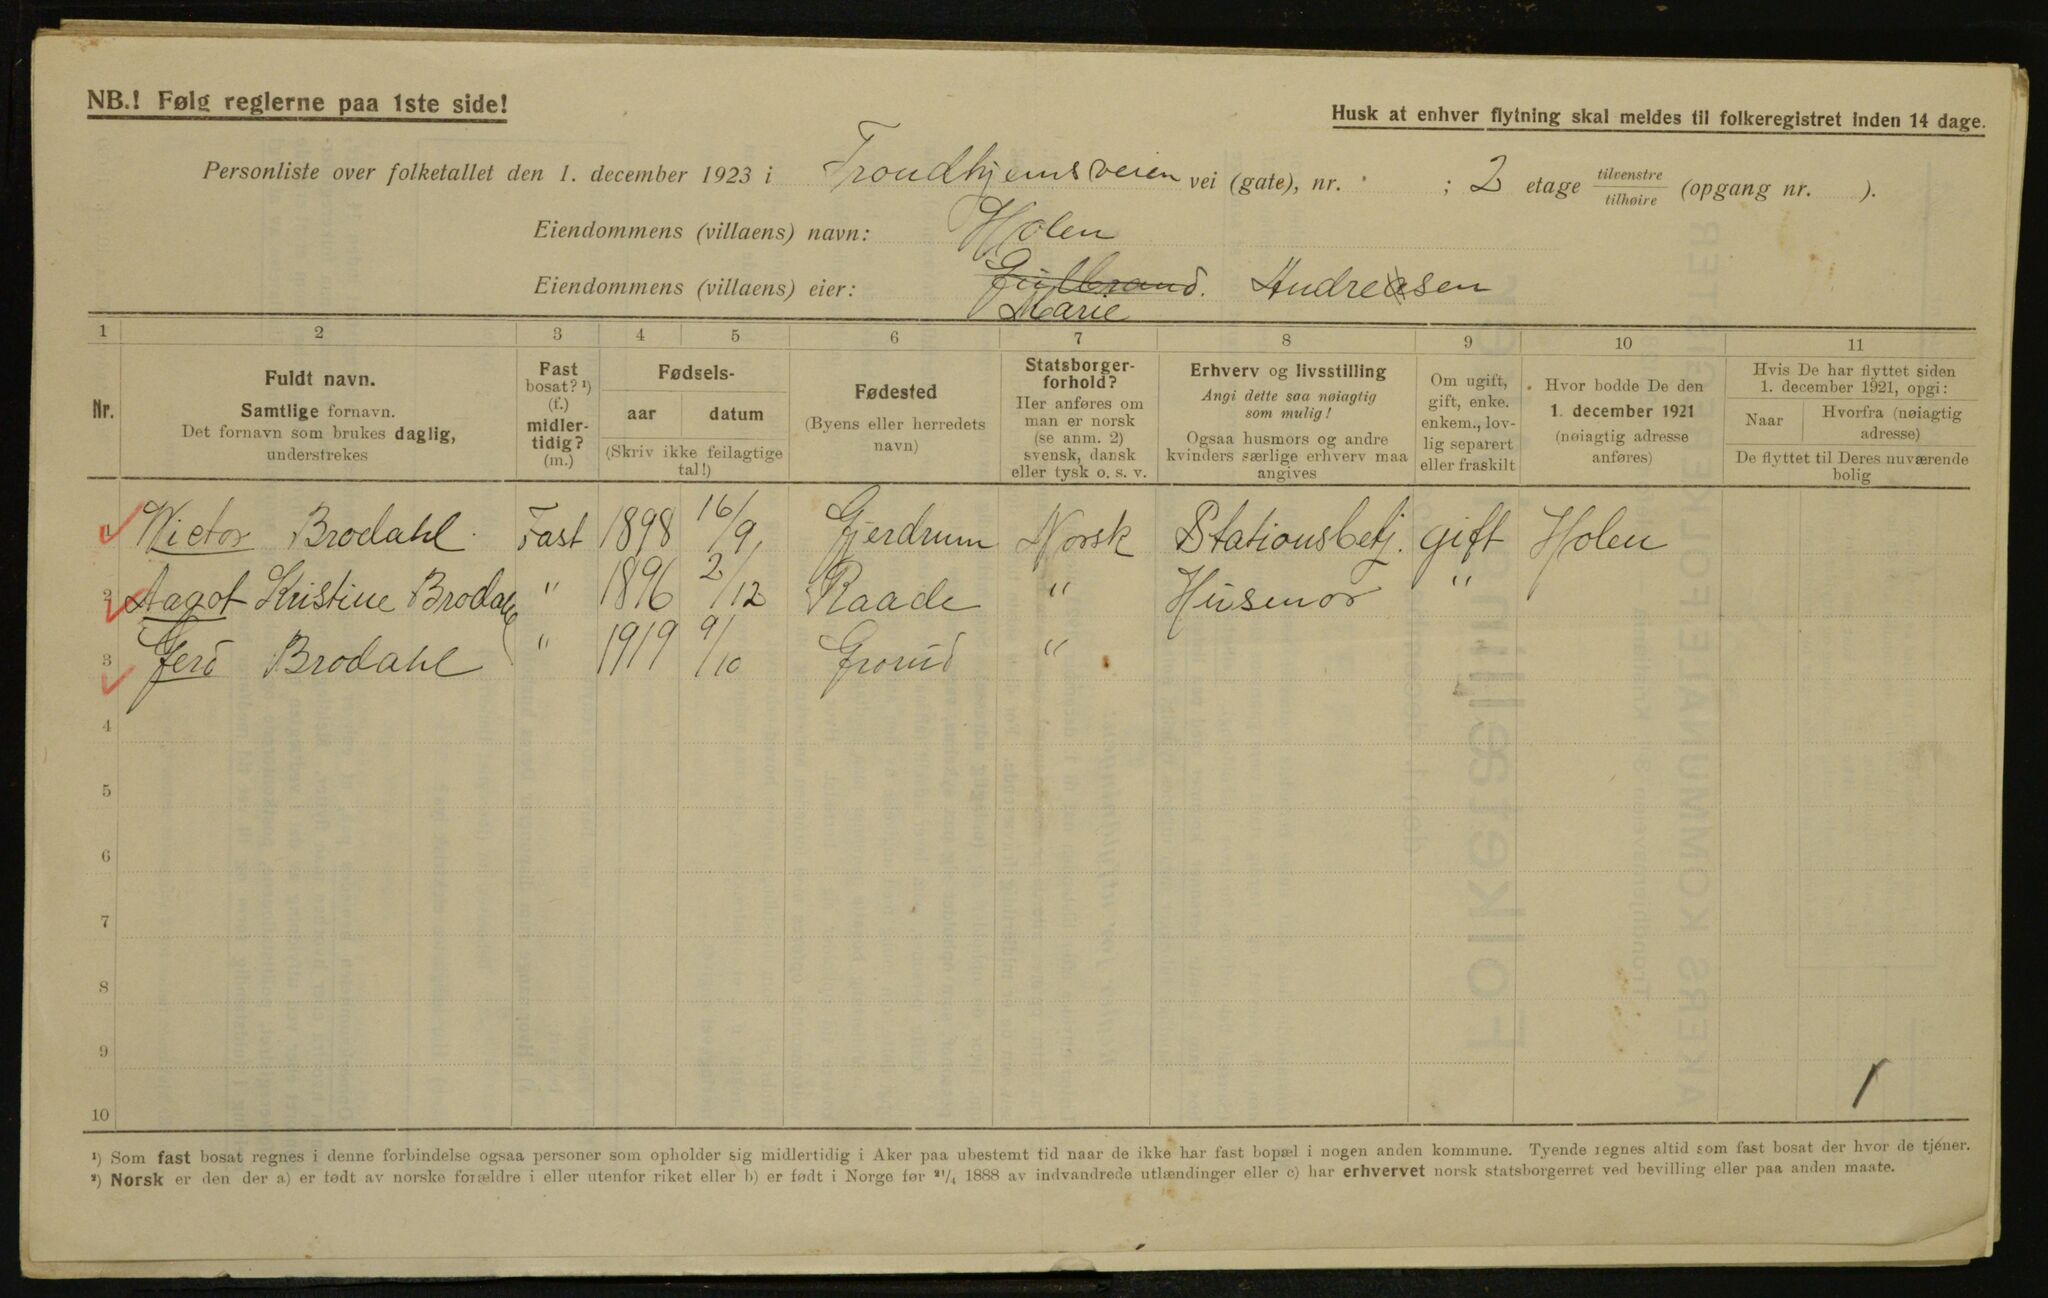 NB.! Følg reglerne paa 1ste side!
Husk at enhver flytning skal meldes til folkeregistret inden 14 dage.
Personliste over folketallet den 1. december 1923 i Trondhjemsveien vei (gate), nr. ; 2 etage tilvenstre/tilhøire (opgang nr. ).
Eiendommens (villaens) navn: Holen
Eiendommens (villaens) eier: Gulbrand. Andreasen
Marie
1 2 3 4 5 6 7 8 9 10 11
Nr.
Fuldt navn.
Samtlige fornavn.
Det fornavn som brukes daglig,
understrekes
Fast
bosat? ¹)
(f.)
midler-
tidig?
(m.)
Fødsels-
aar datum
(Skriv ikke feilagtige
tal!)
Fødested
(Byens eller herredets
navn)
Statsborger-
forhold?
Her anføres om
man er norsk
(se anm. 2)
svensk, dansk
eller tysk o. s. v.
Erhverv og livsstilling
Angi dette saa nøiagtig
som mulig!
Ogsaa husmors og andre
kvinders særlige erhverv maa
angives
Om ugift,
gift, enke.
enkem., lov-
lig separert
eller fraskilt
Hvor bodde De den
1. december 1921
(nøiagtig adresse
anføres)
Hvis De har flyttet siden
1. december 1921, opgi:
Naar
Hvorfra (nøiagtig
adresse)
De flyttet til Deres nuværende
bolig
1 Victor Brodahl. Fast 1898 16/9 Gjerdrum Norsk Stationsbetj. gift Holen
2 Aagot Kristine Brodahl " 1896 2/12 Raade " Husmor "
3 Gerd Brodahl " 1919 9/10 Grorud "
4
5
6
7
8
9
10
¹) Som fast bosat regnes i denne forbindelse ogsaa personer som opholder sig midlertidig i Aker paa ubestemt tid naar de ikke har fast bopæl i nogen anden kommune. Tyende regnes altid som fast bosat der hvor de tjener.
²) Norsk er den der a) er født av norske forældre i eller utenfor riket eller b) er født i Norge før ²¹/₄ 1888 av indvandrede utlændinger eller c) har erhvervet norsk statsborgerret ved bevilling eller paa anden maate.